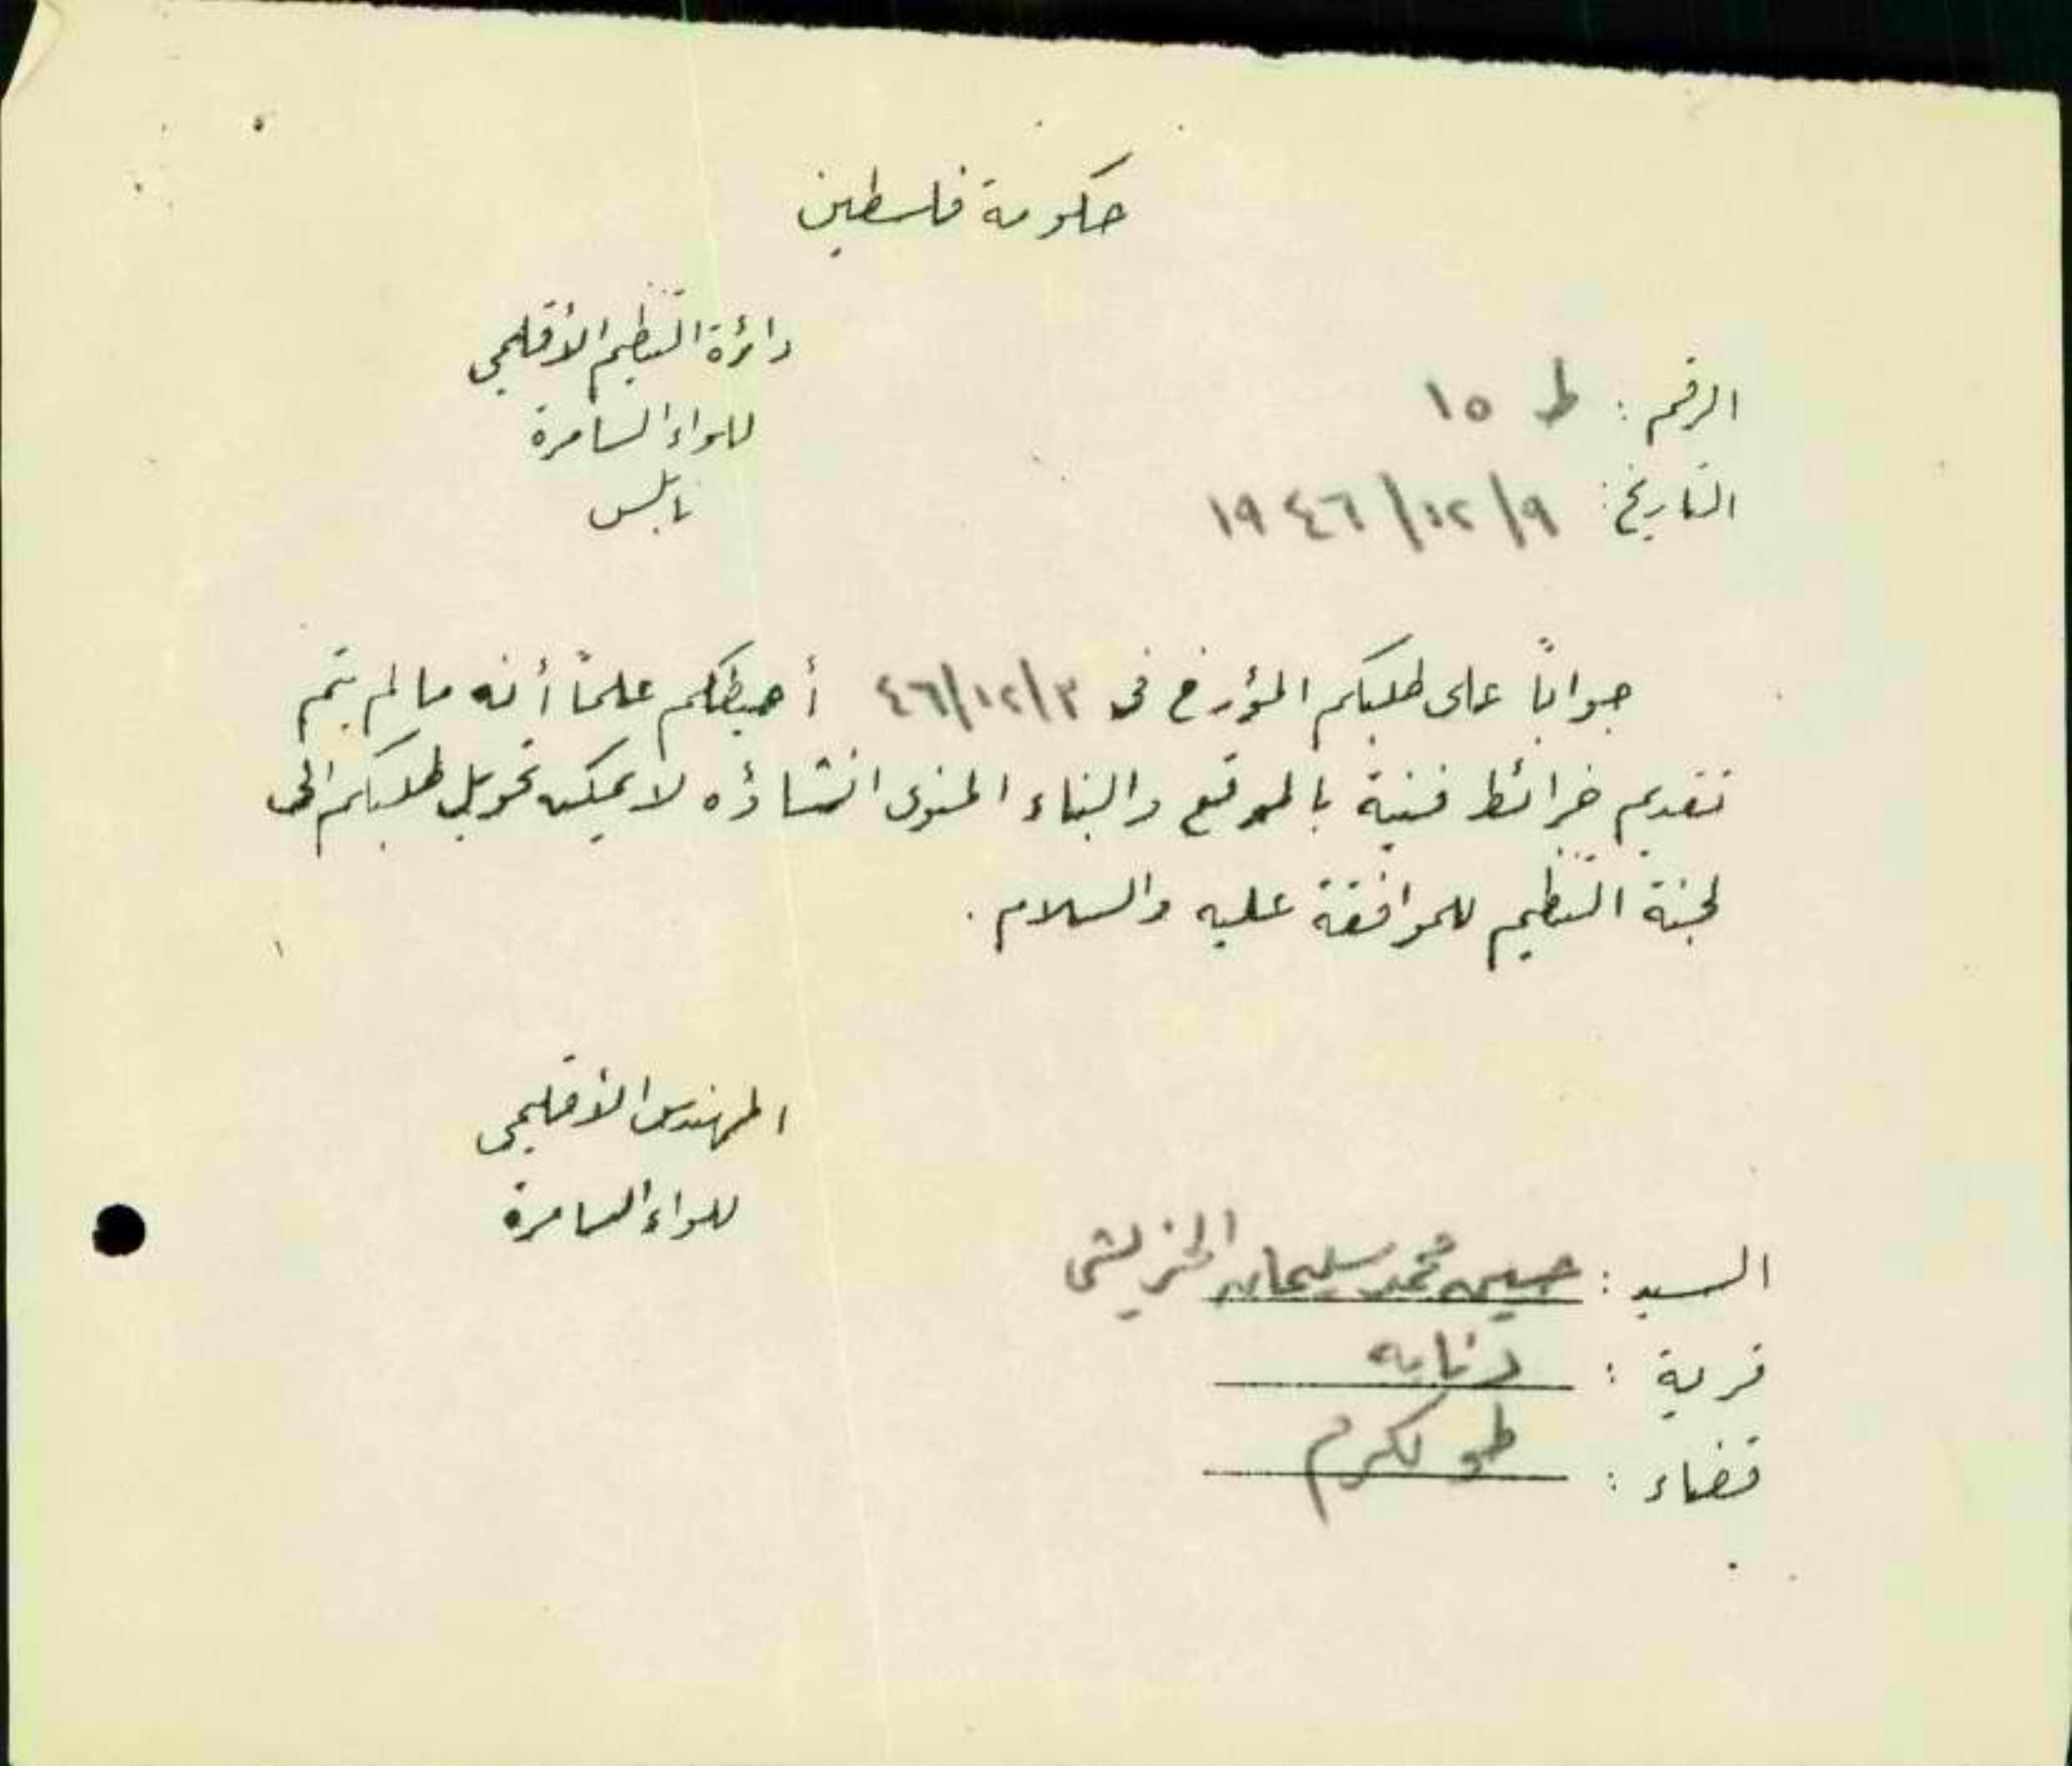 حكومة فلسطين
دائرة التنظيم الأقليمي
للواء السامرة
نابلس
الرقم : ط ١٥
التاريخ : ٩/١٢/١٩٤٦
جواباً على طلبكم المؤرخ في ٣/١٢/٤٦ أحيطكم علماً أنه ما لم يتم
تقديم خرائط فنية بالموقع والبناء المنوى انشاؤه لا يمكن تحويل طلبكم الى
لجنة التنظيم للموافقة عليه والسلام .
المهندس الأقليمي
للواء السامرة
السيد : حسين محمد سليمان
قرية : دنابه
قضاء : طولكرم